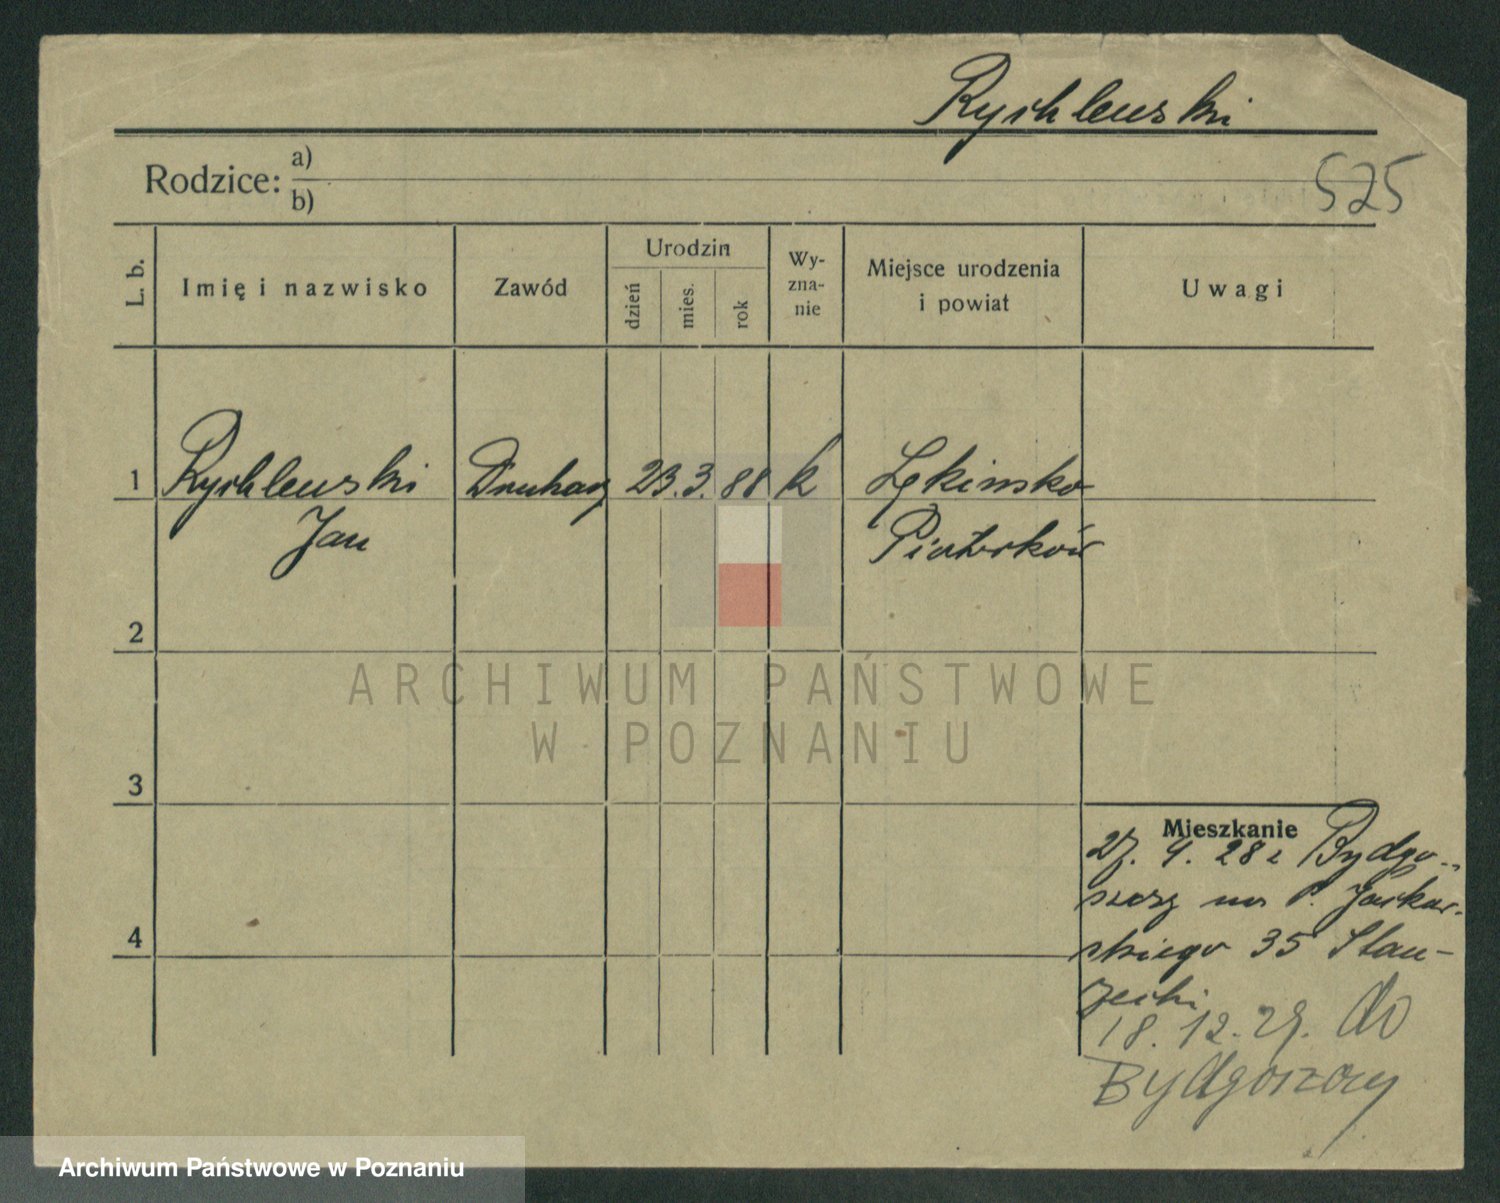 Rychlewski
Rodzice: a)
b)
525
L. b.
Imię i nazwisko
Zawód
Urodzin
dzień
mies.
rok
Wy-
zna-
nie
Miejsce urodzenia
i powiat
Uwagi
1 Rychlewski Drukarz 23. 3. 88 k Łękinsko
Jan Piotrków
2
3
4
Mieszkanie
27. 4. 28 z Bydgo-
szczy na P.
skiego 35
18. 12. 29. do
Bydgoszczy
ARCHIWUM PAŃSTWOWE
W POZNANIU
Archiwum Państwowe w Poznaniu